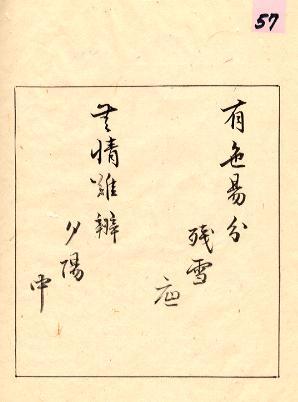 57
有色易分
残雪
底
無情難辨
夕陽
中